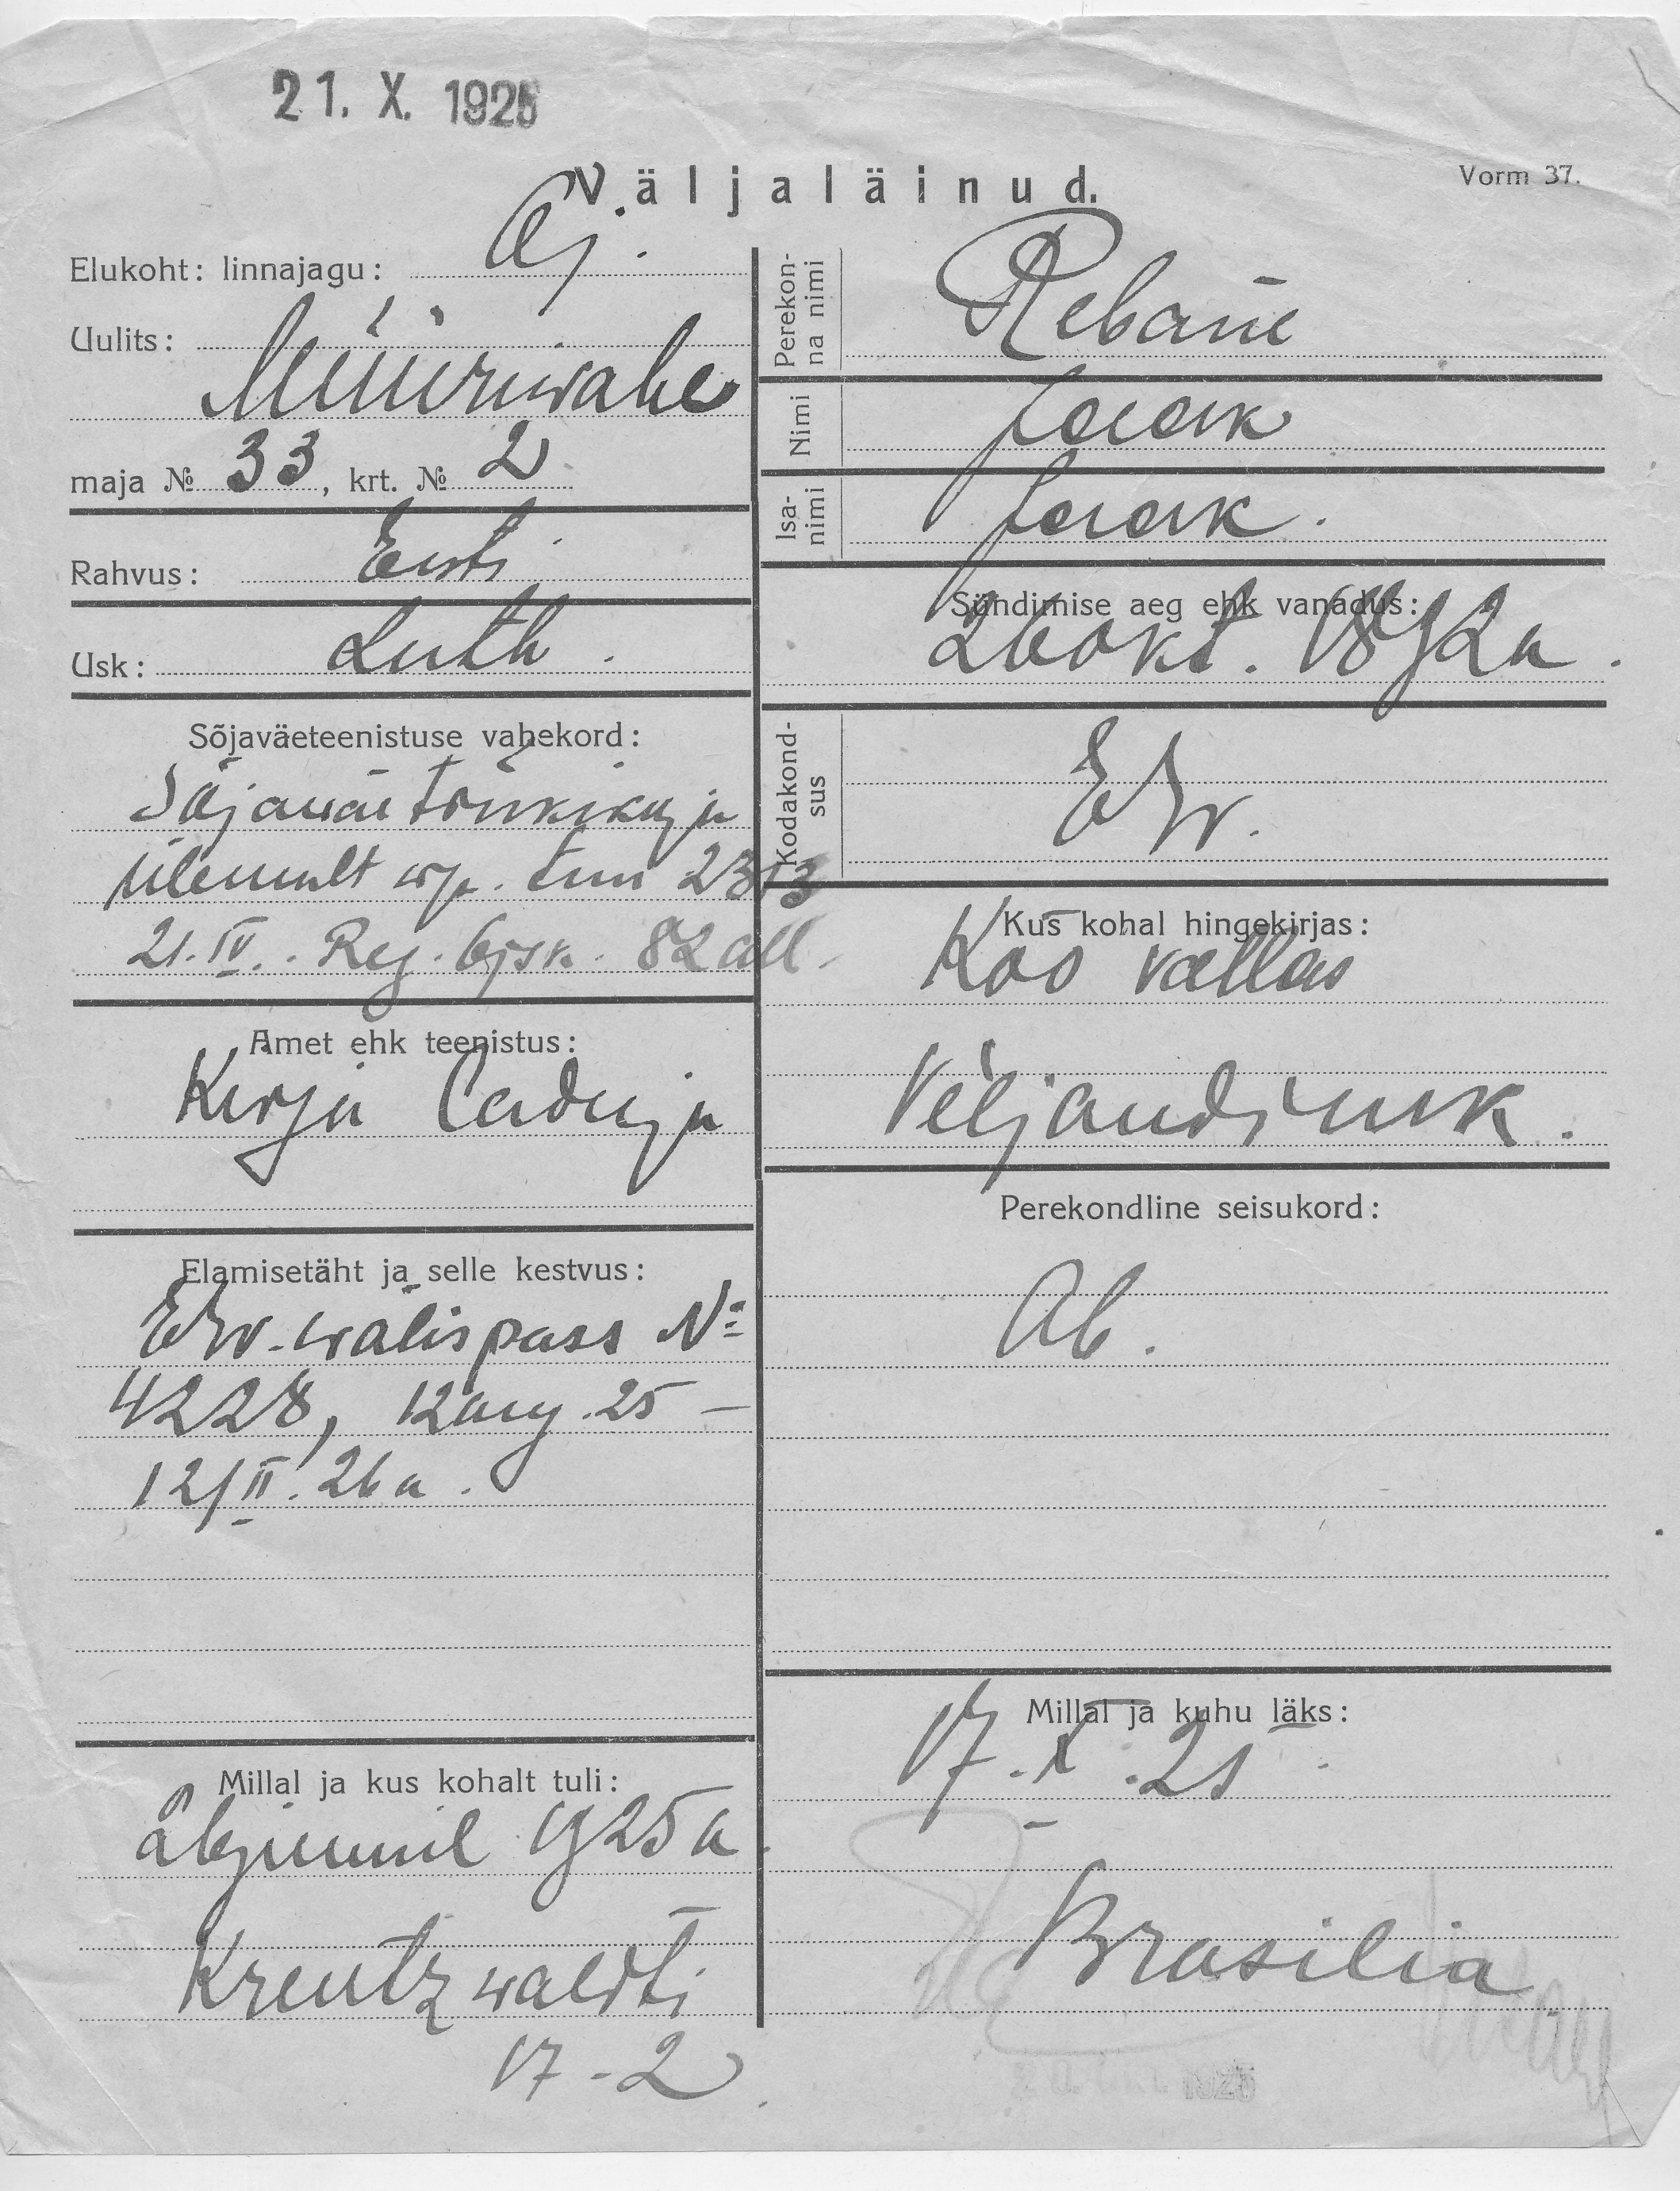 21. X. 1925
Väljaläinud.
Vorm 37.
Elukoht: linnajagu:
Uulits:
Müüriwahe
maja № 33, krt. № 2
Rahvus: Eesti
Usk: Luth.
Sõjaväeteenistuse vahekord:
Sõjawäe
ülemalt wp. tun 2313
21.IV. Reg. 82 all.
Amet ehk teenistus:
Kirja laduja
Elamisetäht ja selle kestvus:
EW. walispass №
4228, 12 aug. 25 –
12/II. 26 a.
Millal ja kus kohalt tuli:
1925 a.
Kreutzwaldti
17-2
Perekon-
na nimi
Rebane
Nimi
Jaak
Isa-
nimi
Jaak.
Sündimise aeg ehk vanadus:
26 okt. 1892 a.
Kodakond-
sus
EW.
Kus kohal hingekirjas:
Koo vallas
Viljandi mk.
Perekondline seisukord:
Ab.
Millal ja kuhu läks:
17.X.25
Brasilia
1925